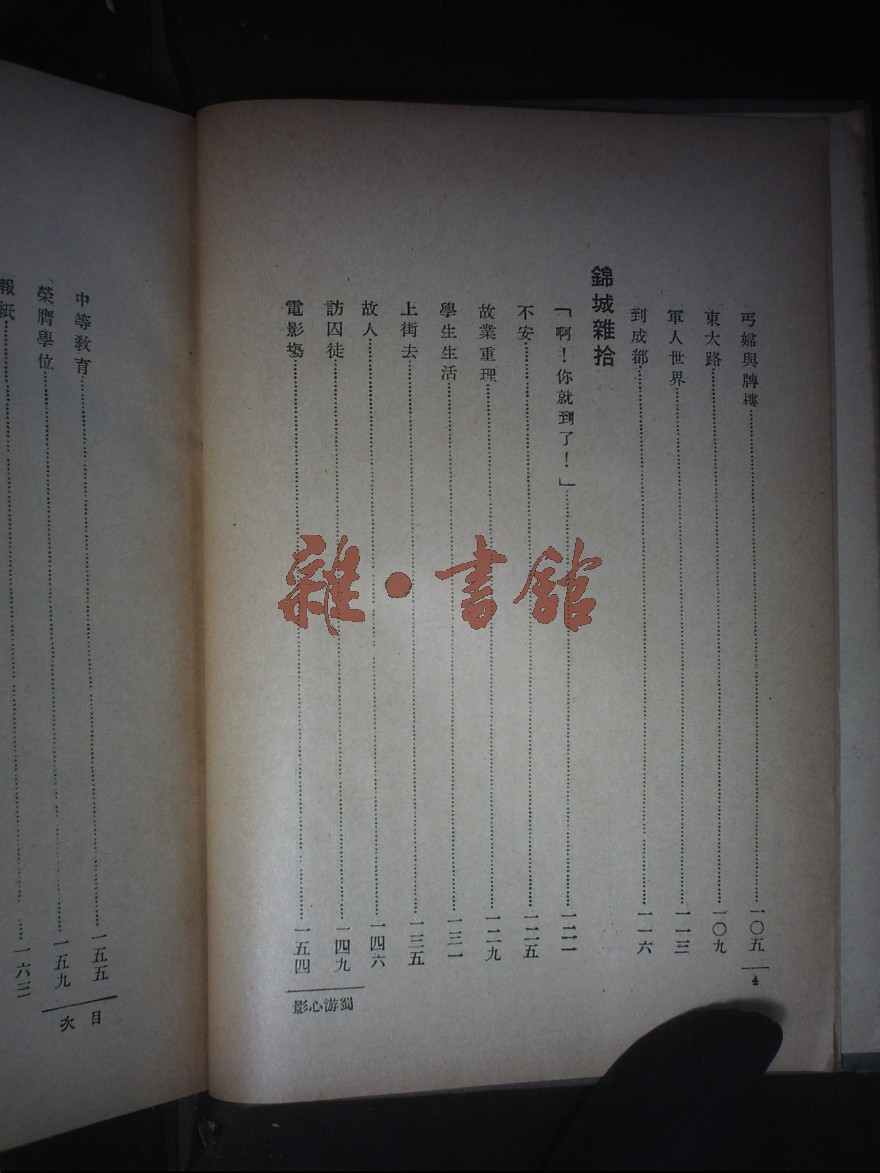 丐婦與牌樓……一〇五
東大路……一〇九
軍人世界……一一三
到成都……一一六
錦城雜拾
「啊！你就到了！」……一二一
不安……一二五
故業重理……一二九
學生生活……一三一
上街去……一三五
故人……一四六
訪囚徒……一四九
電影場……一五四
4
蜀游心影
中等教育……一五五
榮膺學位……一五九
報紙……一六三
目次
雜·書館